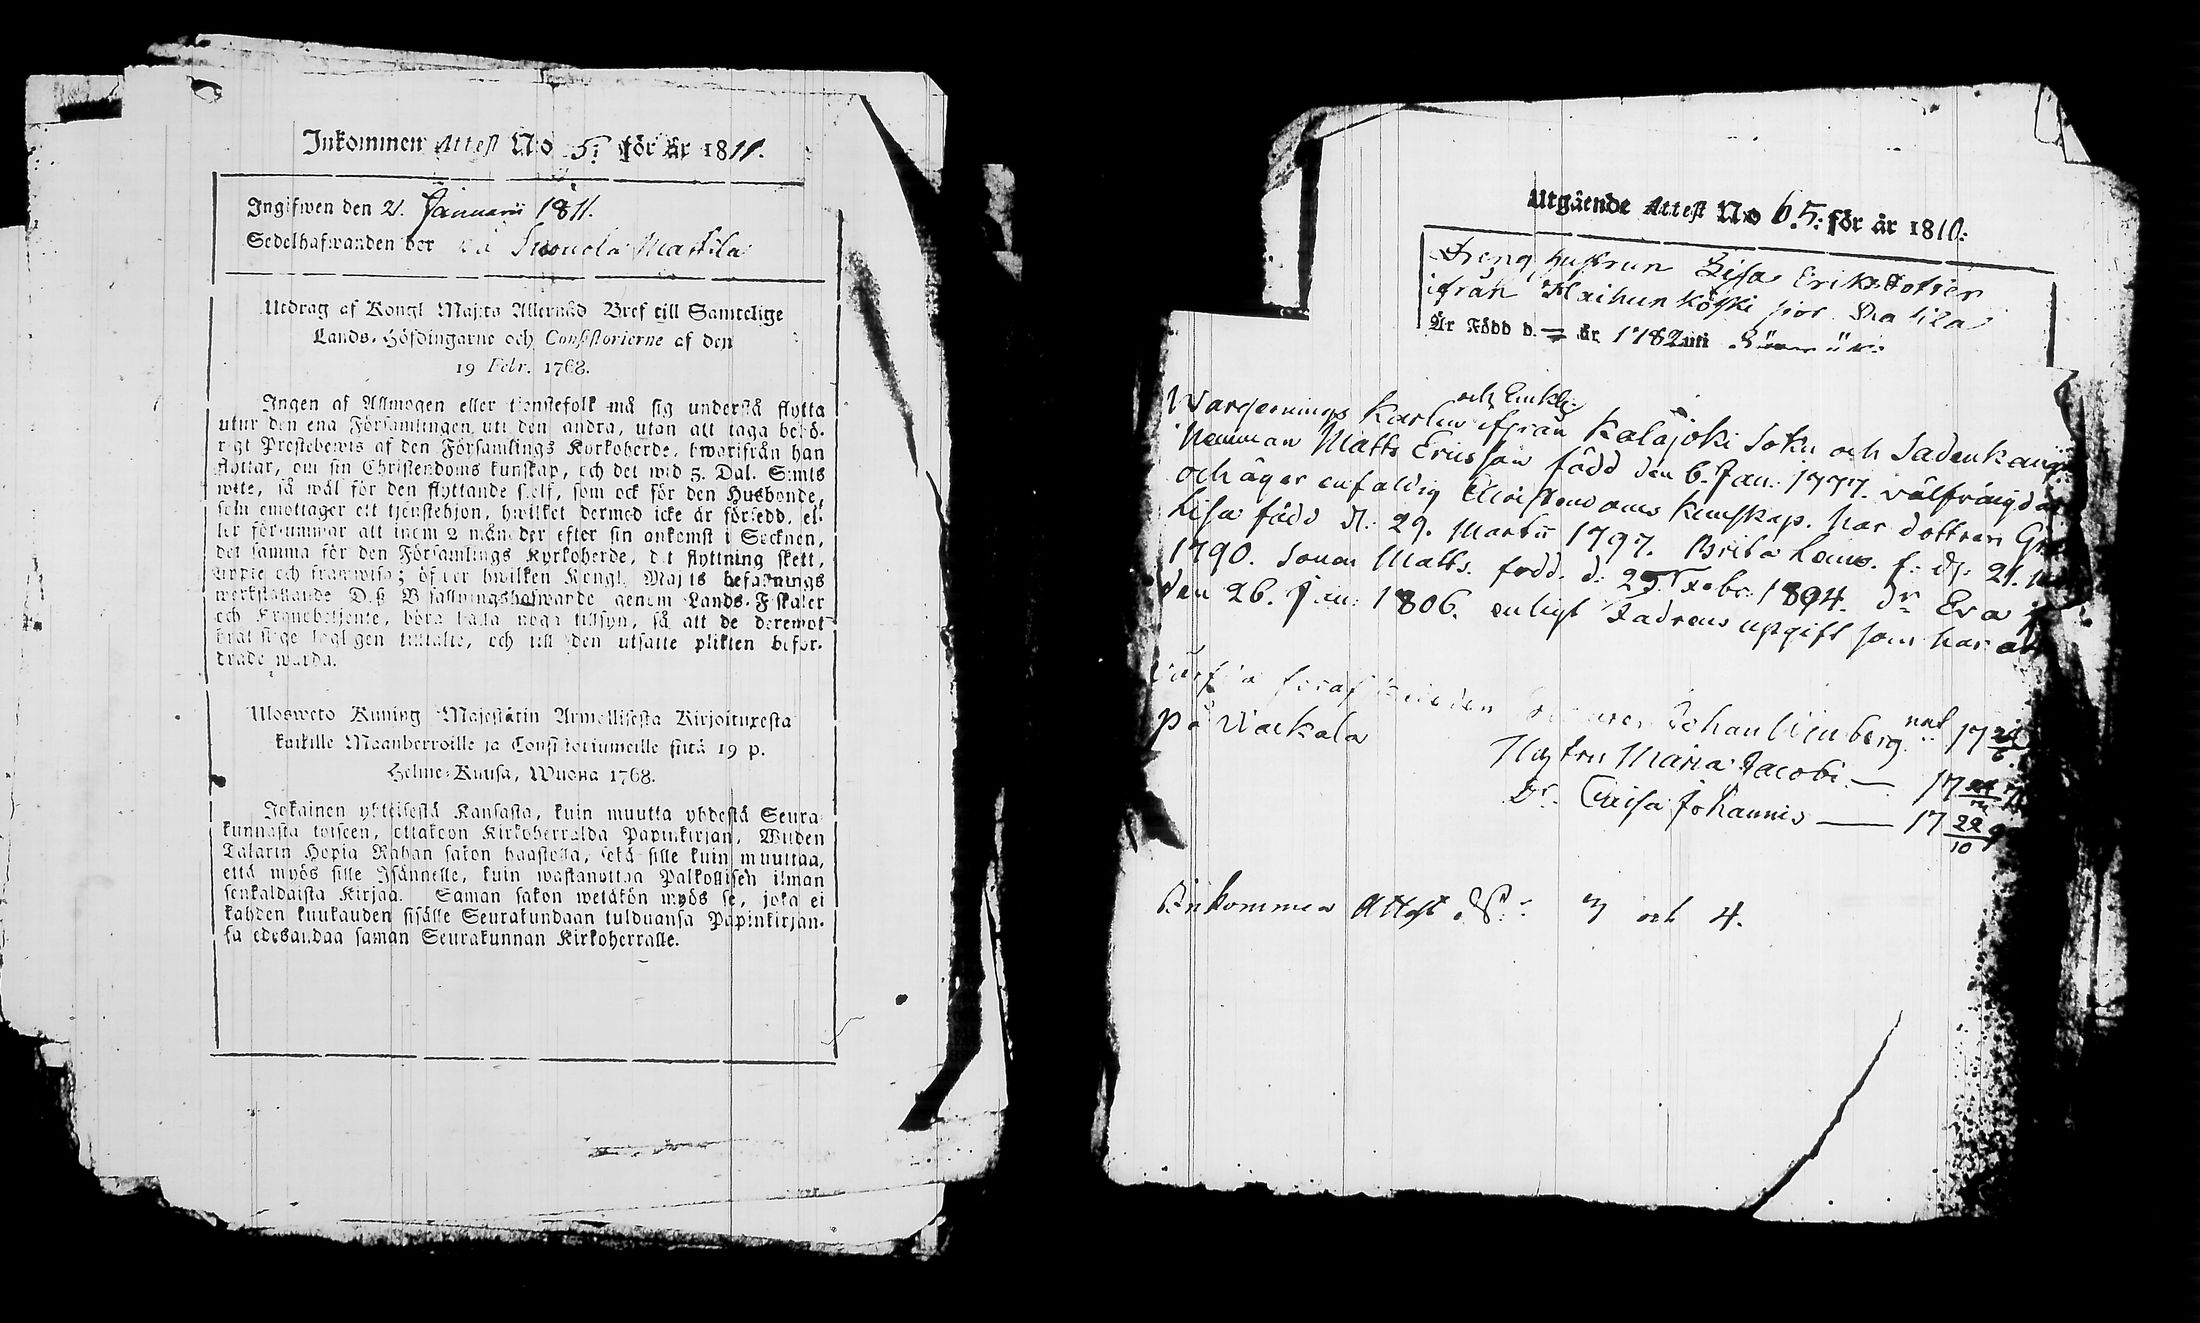 Inkommen Attest No 5: för år 1811.
Ingifwen den 21. Januarii 1811.
Sedelhafwanden bor på Suonela Mattila
Utdrag af Kongl Maj:ts Allernåd Bref till Samtelige
Lands-Höfdingarne och Consistorierne af den
19 Febr. 1768.
Ingen af Allmogen eller tienstefolk må sig understå flytta
utur den ena Församlingen uti den andra, utan att taga behö-
rigt Prestebewis af den Församlings Kyrkoherde, hwarifrån han
flyttar, om sin Christendoms kunskap, och det wid 3. Dal. S:mts
wite, så wäl för den flyttande sjelf, som ock för den Husbonde,
som emottager ett tjenstehjon, hwilket dermed icke är försedd, el-
ler försummar att inom 2 månader efter sin ankomst i Socknen,
det samma för den Församlings Kyrkoherde, dit flyttning skett,
uppte och framwisa; öfwer hwilken Kongl. Maj:ts befallnings
werkställande Deß Befallningshafwande genom Lands-Fiskaler
och Kronobetjente, böra hålla noga tillsyn, så att de deremot
brotslige lagligen tilltalte, och till den utsatte plikten befor-
drade warda.
Ulosweto Kuning Majestätin Armollisesta Kirjoituxesta
kaikille Maanherroille ja Consistoriumeille siitä 19 p.
Helme-Kuusa, Wuona 1768.
Jokainen yhteisestä Kansasta, kuin muutta yhdestä Seura-
kunnasta toiseen, ottakoon Kirkoherralda Papinkirjan, Wiiden
Talarin Hopia Rahan sakon haastolla, sekä sille kuin muuttaa,
että myös sille Isännelle, kuin wastanottaa Palkollisen ilman
senkaldaista Kirjaa. Saman sakon wetäkön myös se, joka ei
kahden kuukauden sisälle Seurakundaan tulduansa Papinkirjan-
sa edesandaa saman Seurakunnan Kirkoherralle.
Utgående Attest No 65: för år 1810:
Dreng hustrun Lisa Ericksdotter
ifrån
Är Född d. = år 1782 uti
och Enkl:
Karlen ifrån Kalajoki Sokn och
Matts Ericsson född den 6. Jan: 1777. välfrägdad
och äger enfaldig Christendoms kunskap. har dottren
Lisa född d: 29. Martii 1797. Brita f: d: 21.
1790. Sonen Matts. född. d: 25. Febr: 1804. Dr Eva
den 26. Jan: 1806. enligt Fadrens uppgift som har
Johan nat 17
på
Hustru Maria Jacobi — 17
Dr. Caisa Johannis — 17 22/10
Inkommen Attest No: 3 och 4.